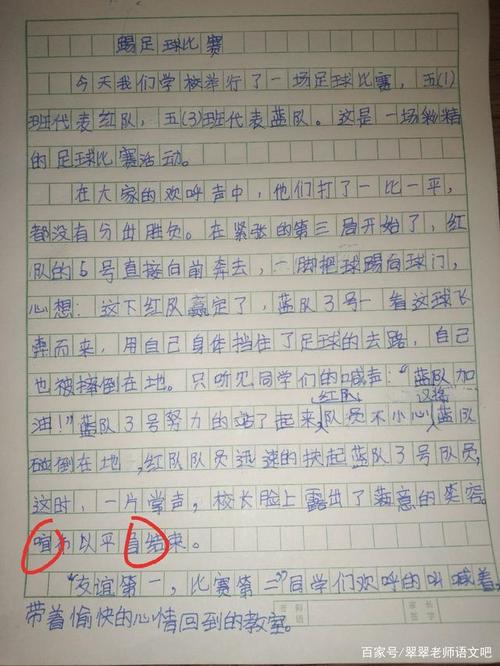 踢足球比赛
今天我们学校举行了一场足球比赛，五(1)
班代表红队，五(3)班代表蓝队。这是一场较精
的足球比赛活动。
在大家的欢呼声中，他们打了一比一平，
都没有分出胜负。在紧张的第三局开始了，红
队的5号直接向前奔去，一脚把球踢向球门，
心想：这下红队赢定了，蓝队3号一看这球飞
奔而来，用自己身体挡住了足球的去路，自己
也被摔倒在地。只听见同学们的喊声："蓝队加
油！"蓝队3号努力的站了起来，红队队员不小心蓝队
碰倒在地，红队队员迅速的扶起蓝队3号队员，
这时，一片掌声，校长脸上露出了满意的笑容。
以平局结束。
"友谊第一，比赛第二"同学们欢呼的叫喊着，
带着愉快的心情回到的教室。
百家号/翠翠老师语文吧